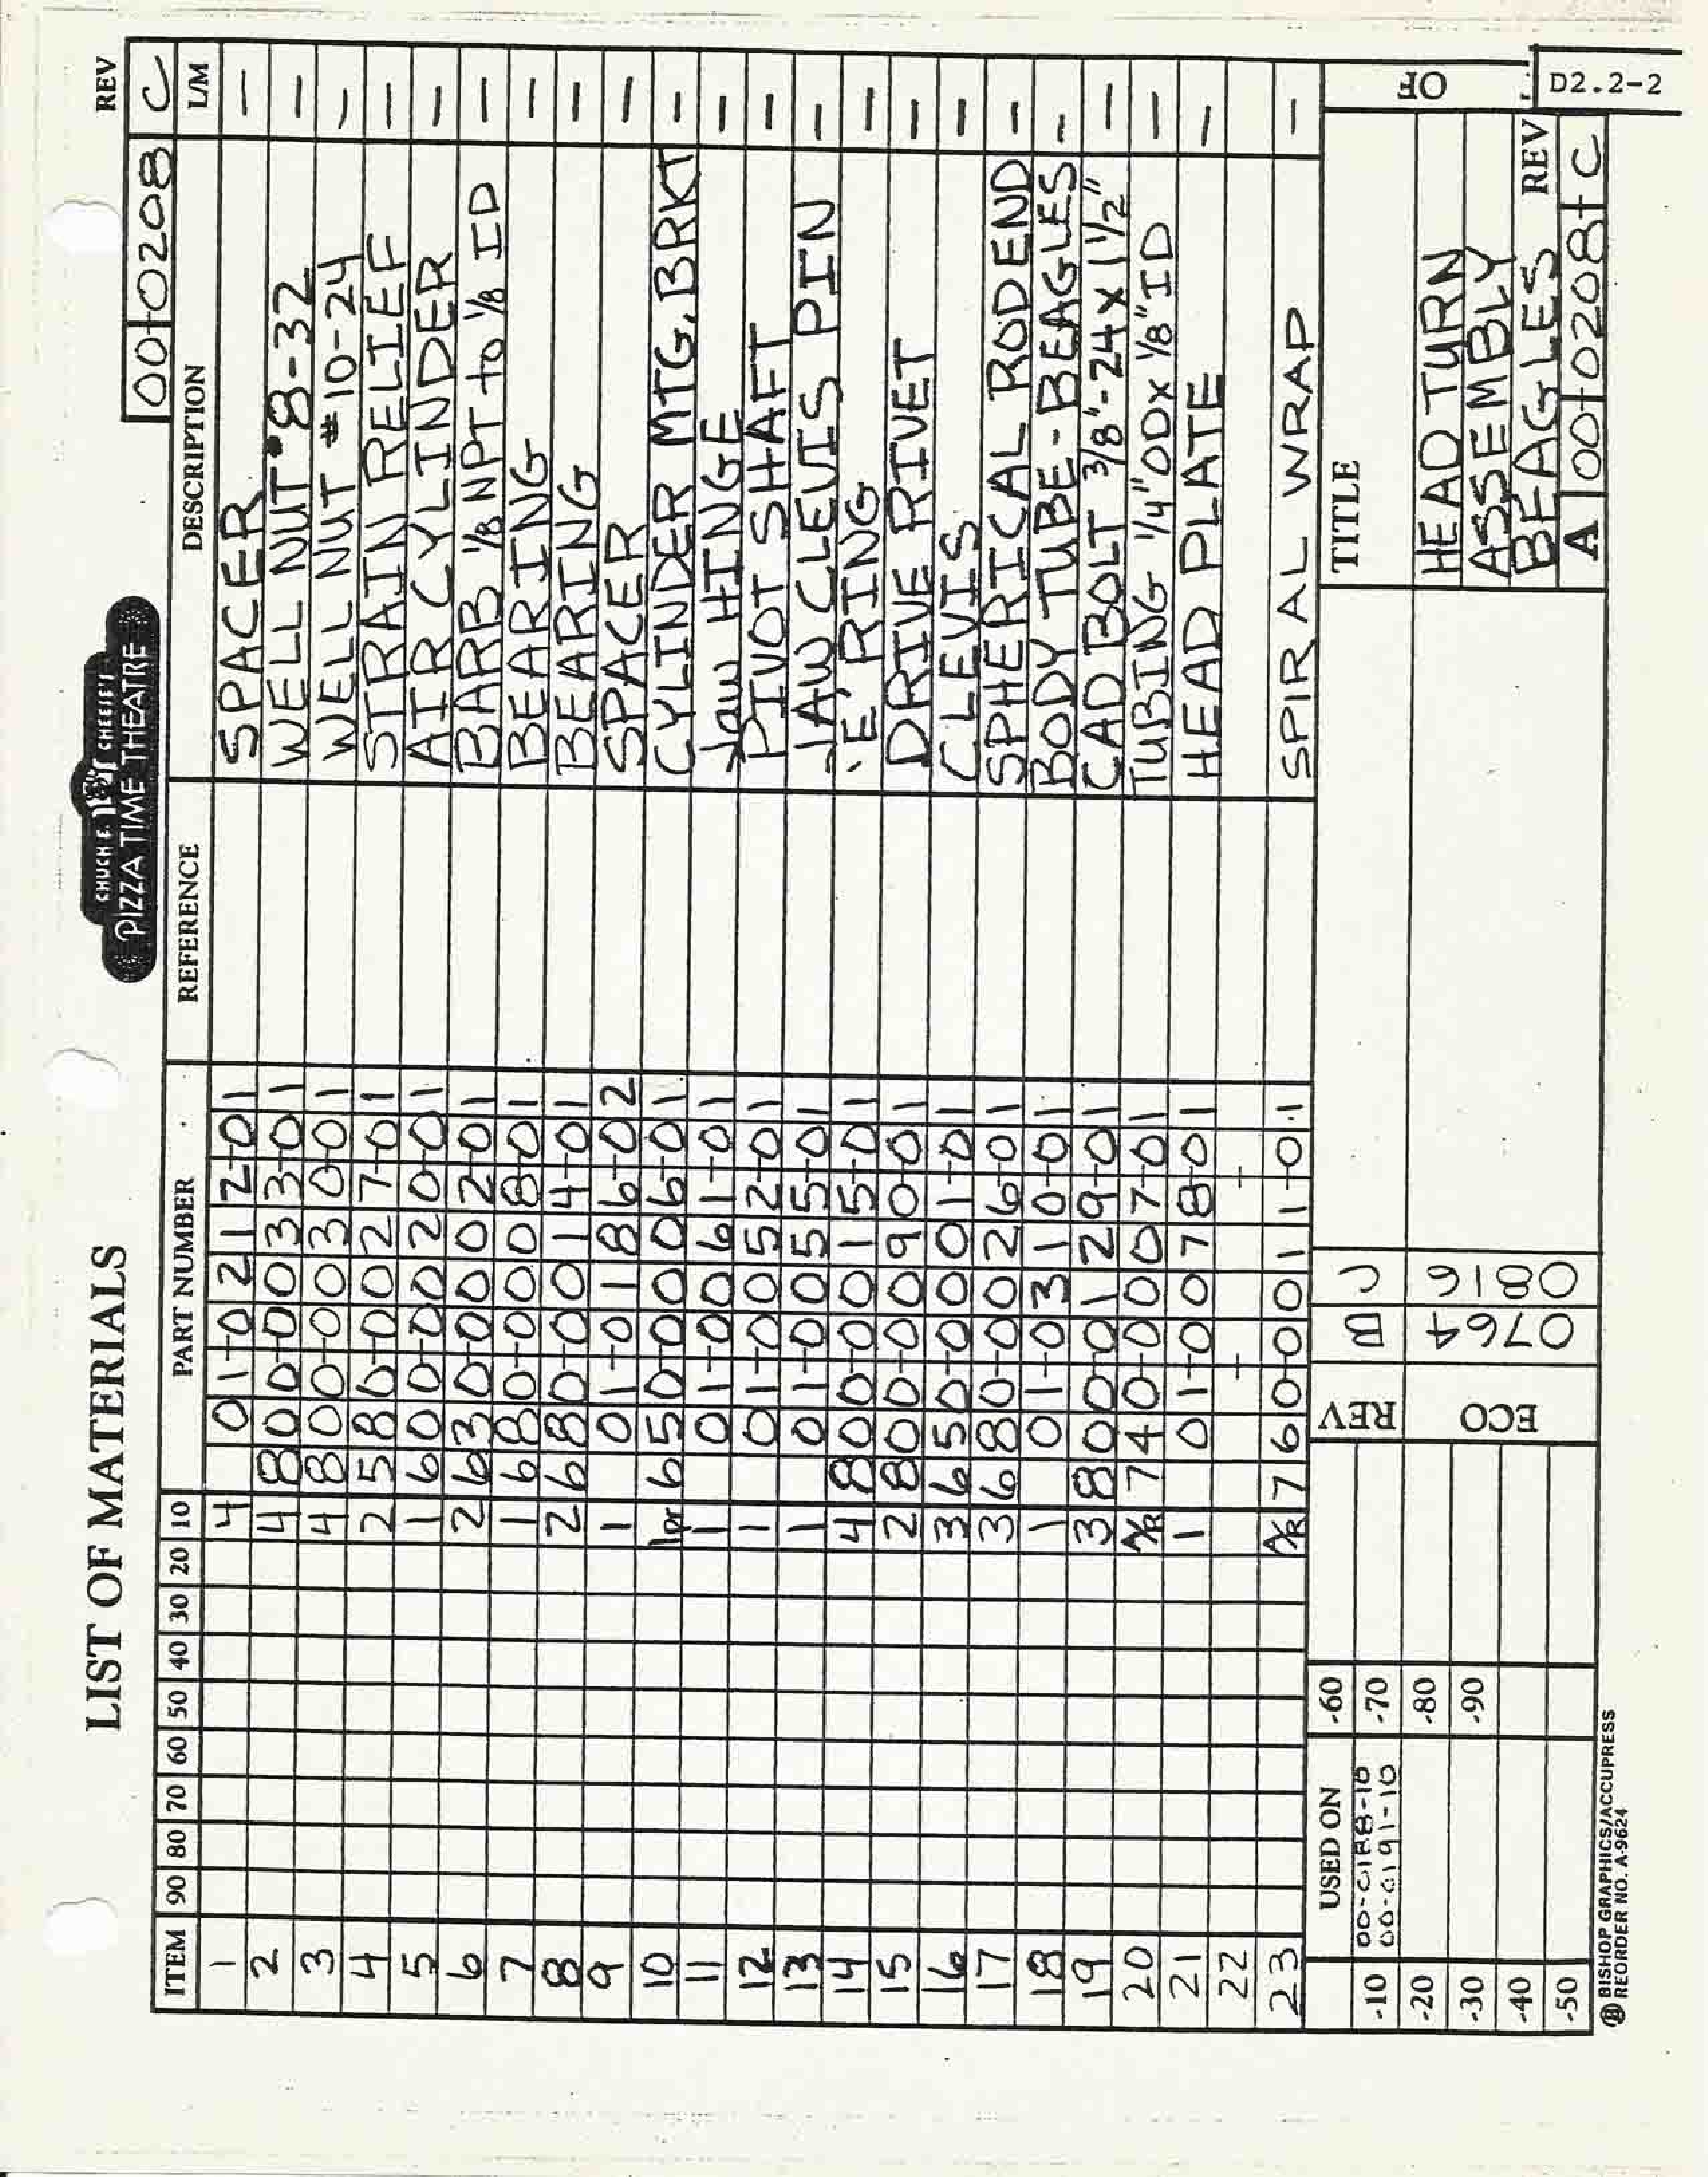 LIST OF MATERIALS
CHUCK E. CHEESE'S
PIZZA TIME THEATRE
REV
00-0208 C
ITEM 90 80 70 60 50 40 30 20 10 PART NUMBER REFERENCE DESCRIPTION L/M
1 4 01-0212-01 SPACER –
2 4 80-0033-01 WELL NUT #8-32 –
3 4 80-0030-01 WELL NUT #10-24 –
4 2 580-0027-01 STRAIN RELIEF –
5 1 60-0020-01 AIR CYLINDER –
6 2 630-0002-01 BARB 1/8 NPT to 1/8 ID –
7 1 680-0008-01 BEARING –
8 2 680-0014-01 BEARING –
9 1 01-0186-02 SPACER –
10 1pr 650-0006-01 CYLINDER MTG. BRKT –
11 1 01-0061-01 Jaw HINGE –
12 1 01-0052-01 PIVOT SHAFT –
13 1 01-0055-01 JAW CLEVIS PIN –
14 4 800-0015-01 'E' RING –
15 2 800-0090-01 DRIVE RIVET –
16 3 650-0001-01 CLEVIS –
17 3 680-0026-01 SPHERICAL RODEND –
18 1 01-0310-01 BODY TUBE-BEAGLES –
19 3 800-0129-01 CAD BOLT 3/8"-24 X 1 1/2" –
20 A/R 740-0007-01 TUBING 1/4" OD x 1/8" ID –
21 1 01-0078-01 HEAD PLATE –
22
23 A/R 760-0011-01 SPIRAL WRAP –
USED ON
-10 00-0188-10
00-0191-10
-20
-30
-40
-50
-60
-70
-80
-90
REV B C
ECO 0764 0816
TITLE
HEAD TURN
ASSEMBLY
BEAGLES
OF
REV
A 00-0208 C
D2.2-2
BISHOP GRAPHICS/ACCUPRESS
REORDER NO. A-9624